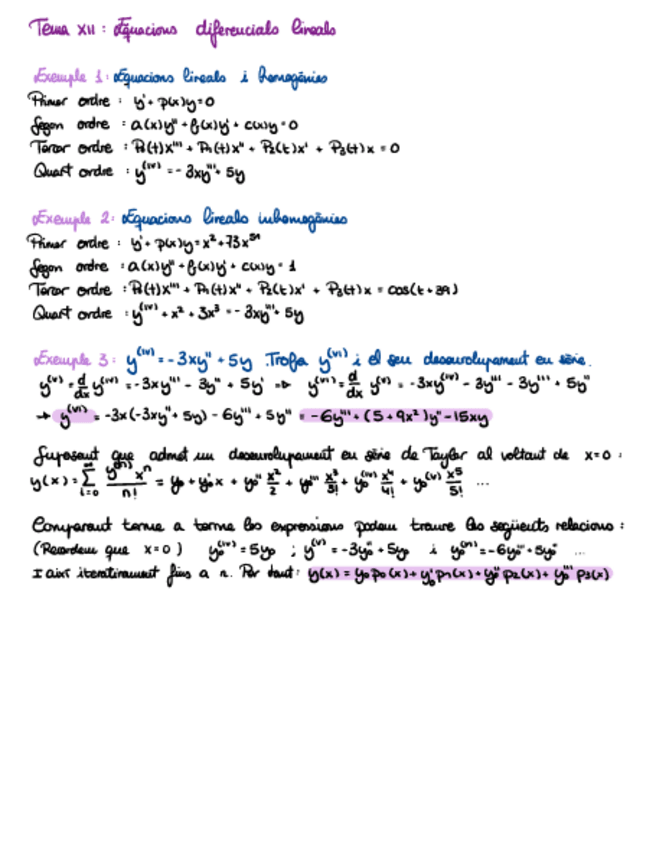 Tema XII : Equacions diferencials lineals
Exemple 1: Equacions lineals i homogènies
Primer ordre : y' + p(x)y = 0
Segon ordre : a(x)y'' + b(x)y' + c(x)y = 0
Tercer ordre : P₀(t)x''' + P₁(t)x'' + P₂(t)x' + P₃(t)x = 0
Quart ordre : y⁽ᴵⱽ⁾ = -3xy'' + 5y
Exemple 2: Equacions lineals inhomogènies
Primer ordre : y' + p(x)y = x² + 73x⁵¹
Segon ordre : a(x)y'' + b(x)y' + c(x)y = 1
Tercer ordre : P₀(t)x''' + P₁(t)x'' + P₂(t)x' + P₃(t)x = cos(t + 39)
Quart ordre : y⁽ᴵⱽ⁾ + x² + 3x³ = -3xy'' + 5y
Exemple 3: y⁽ᴵⱽ⁾ = -3xy'' + 5y . Troba y⁽ⱽᴵ⁾ i el seu desenvolupament en sèrie.
y⁽ⱽ⁾ = d/dx y⁽ᴵⱽ⁾ = -3xy''' - 3y'' + 5y' => y⁽ⱽᴵ⁾ = d/dx y⁽ⱽ⁾ = -3xy⁽ᴵⱽ⁾ - 3y''' - 3y''' + 5y''
→ y⁽ⱽᴵ⁾ = -3x(-3xy'' + 5y) - 6y''' + 5y'' = -6y''' + (5 + 9x²)y'' - 15xy
Suposant que admet un desenvolupament en sèrie de Taylor al voltant de x=0 :
y(x) = ∑ᵢ₌₀^∞ y⁽ⁿ⁾xⁿ/n! = y₀ + y₀'x + y₀'' x²/2 + y₀''' x³/3! + y₀⁽ᴵⱽ⁾ x⁴/4! + y₀⁽ⱽ⁾ x⁵/5! ...
Comparant terme a terme les expressions podem traure les següents relacions :
(Recordem que x=0) y₀⁽ᴵⱽ⁾ = 5y₀ ; y⁽ⱽ⁾ = -3y₀'' + 5y₀ i y₀⁽ⱽᴵ⁾ = -6y₀''' + 5y₀'' ...
I així iterativament fins a n. Per tant: y(x) = y₀p₀(x) + y₀'p₁(x) + y₀''p₂(x) + y₀'''p₃(x)